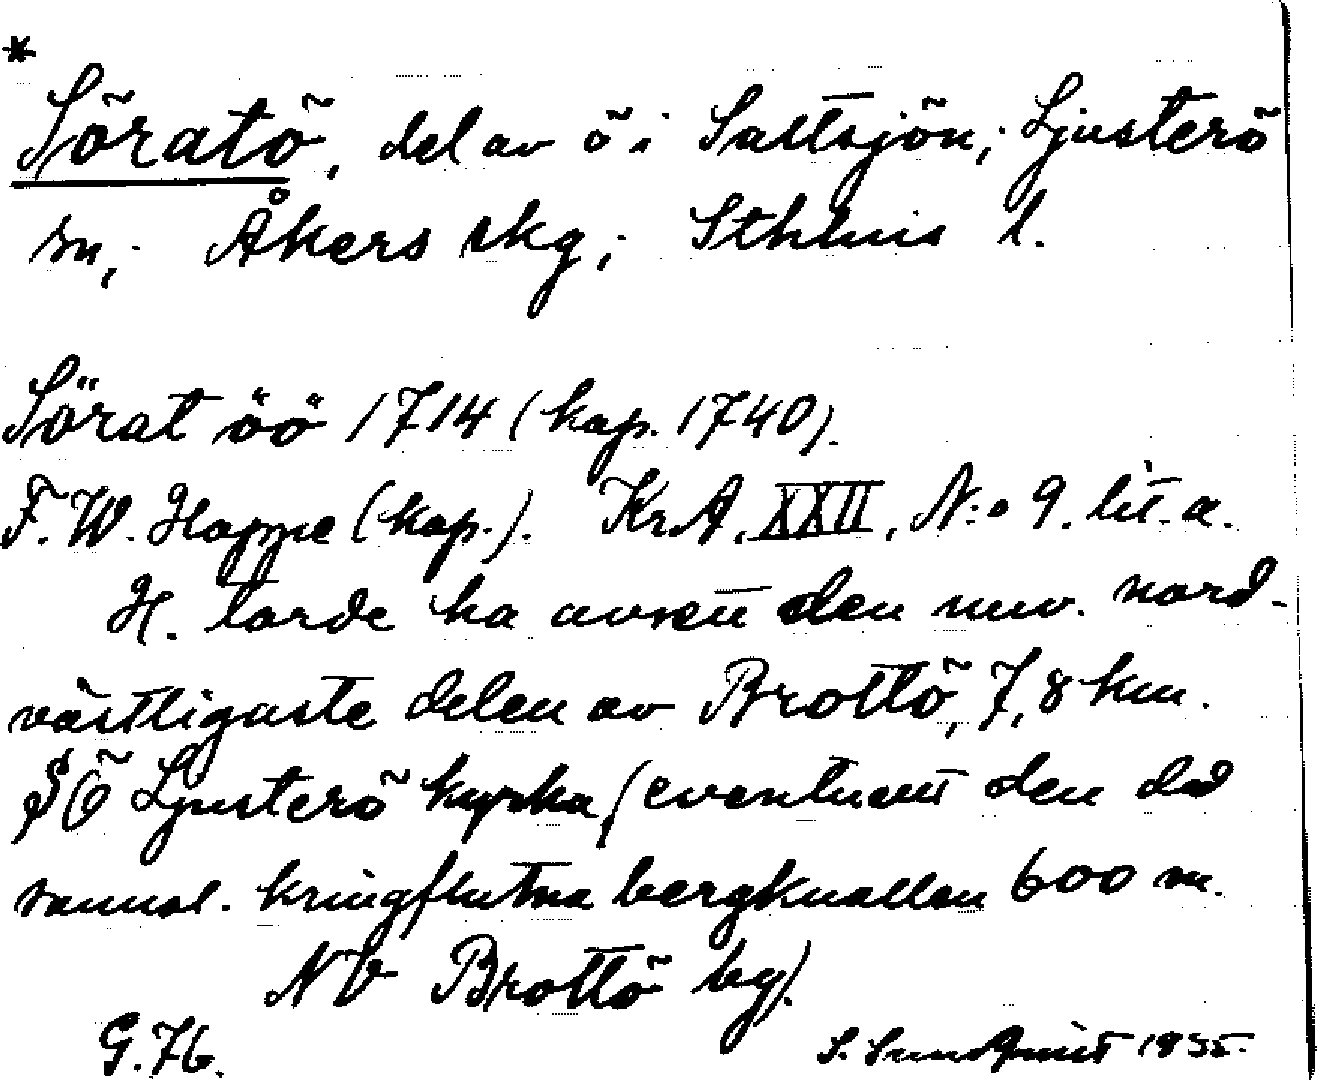 *
Söratö, del av ö i Saltsjön; Ljusterö
sn; Åkers skg; Sthlms l.
Sörat öö 1714 (kap. 1740).
F. W. Happe (kap.). Kr.A. XXII, N:o 9. lit. a.
H. torde ha avsett den nuv. nord-
västligaste delen av Brottö, 7,8 km.
SÖ Ljusterö kyrka (eventuellt den då
sannol. kringflutna bergknallen 600 m.
NV Brottö by).
G. 76.
S. Sundquist 1935.